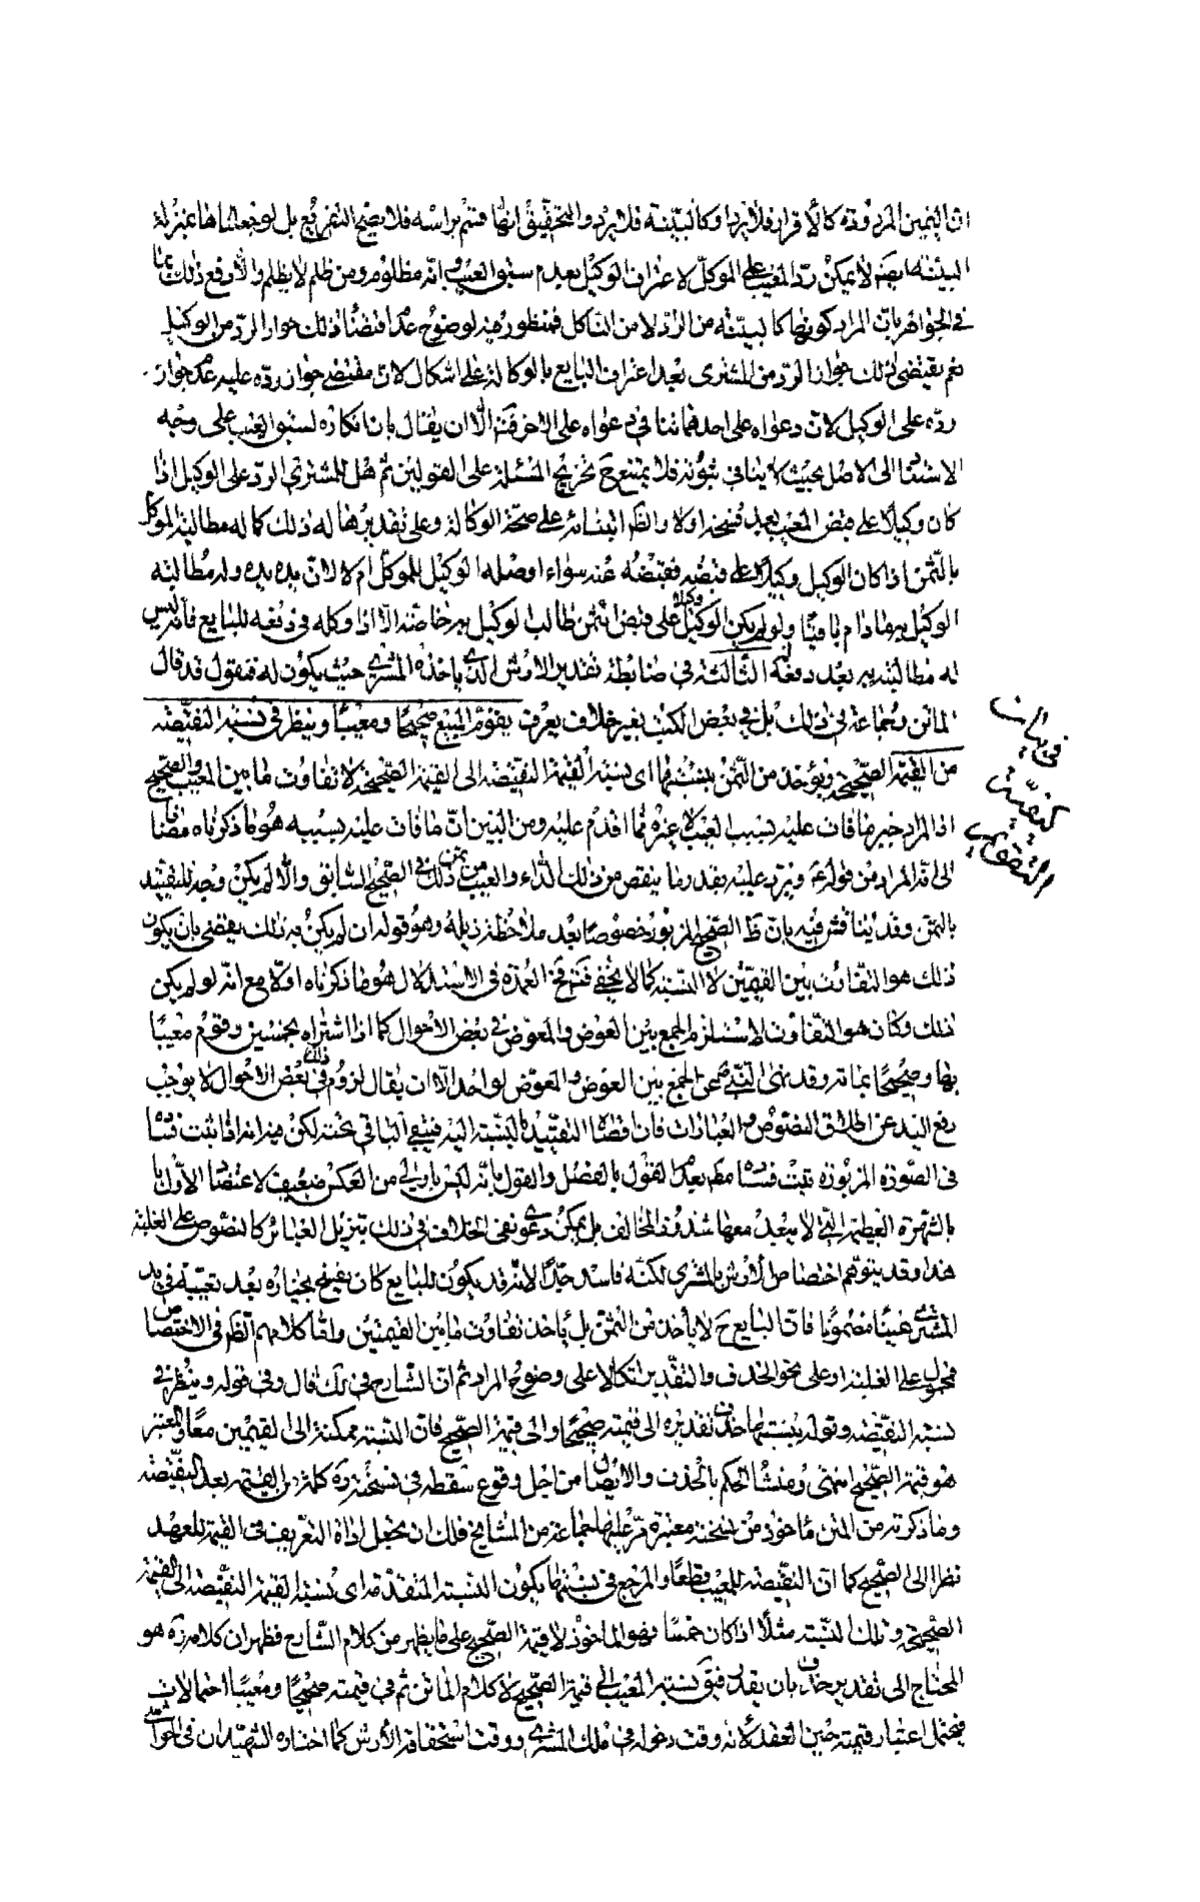 ان اليمين المردودة كالاقرار فلا يرد او كالبينة فلا يرد والتحقيق انها قسم براسه فلا يصح التفريع بل لو جعلناها بمنزلة
البينة لا يمكن رد المعيب على الموكل لاعتراف الوكيل بعدم سبق العيب وانه مظلوم ومن ظلم لا يظلم والا وقع ذلك بما
في الجواهر بان المراد كونها كالبينة من الراد لا من الناكل فمنظور فيه لوضوح عدم اقتضاء ذلك جواز الرد من الوكيل
نعم يقتضي ذلك جواز الرد من المشتري بعد اعتراف البايع بالوكالة على اشكال لان مقتضى جواز رده عليه عدم جواز
رده على الوكيل لان دعواه على احدهما تنافي دعواه على الاخر فت الا ان يقال بان انكاره لسبق العيب على وجه
الاستناد الى الاصل بحيث لا ينافي ثبوته فلا يمتنع ح تخريج المسئلة على القولين ثم هل للمشتري الرد على الوكيل اذا
كان وكيلا على قبض المعيب بعد فسخه اولا والظ ابتنائه على صحة الوكالة وعلى تقديرها له ذلك كما له مطالبة الموكل
بالثمن اذا كان الوكيل وكيلا على قبضه فقبضه عنه سواء اوصله الوكيل للموكل ام لا لان يده يده وله مطالبة
الوكيل به مادام باقيا ولو لم يكن الوكيل وكيلا على قبض الثمن طالب الوكيل به خاصة الا اذا وكله في دفعه للبايع فانه ليس
له مطالبته به بعد دفعه الثالثة في ضابطة تقدير الارش الذي ياخذه المشتري حيث يكون له فنقول قد قال
الماتن وجماعة في ذلك بل في بعض الكتب بغير خلاف يعرف يقوم المبيع صحيحا ومعيبا وينظر في نسبة النقيصة
من القيمة الصحيحة ويؤخذ من الثمن بنسبتها اي نسبة القيمة النقيصة الى القيمة الصحيحة لا تفاوت ما بين المعيب والصحيح
اذ المراد جبر ما فات عليه بسبب العيب لا غيره مما اقدم عليه ومن البين ان ما فات عليه بسببه هو ما ذكرناه مضافا
الى انه المراد من قوله ع ويرد عليه بقدر ما ينقص من ذلك الداء والعيب من ثمن ذلك في الصحيح السابق والا لم يكن وجه للتقييد
بالثمن وقد يناقش فيه بان ظ الصحيح المزبور خصوصا بعد ملاحظة ذيله وهو قوله ان لم يكن به ذلك يقضي بان يكون
ذلك هو التفاوت بين القيمتين لا النسبة كما لا يخفى فتح العمدة في الاستدلال هو ما ذكرناه اولا مع انه لو لم يكن
ذلك وكان هو التفاوت لاستلزم الجمع بين العوض والمعوض في بعض الاحوال كما اذا اشتراه بخمسين وقوم معيبا
بها وصحيحا بمائة وقد نهى النبي ص عن الجمع بين العوض والمعوض لواحد الا ان يقال لزوم ذلك في بعض الاحوال لا يوجب
رفع اليد عن اطلاق النصوص والعبارات فان اقصاه التقييد بالنسبة اليه فيبقى الباقي تحته لكن فيه انه اذا ثبت فساده
في الصورة المزبورة ثبت فساده مط بعدم القول بالفصل والقول بانه ليس باولى من العكس ضعيف لاعتضاد الاول
بالشهرة العظيمة التي لا يبعد معها شذوذ المخالف بل يمكن دعوى نفي الخلاف في ذلك بتنزيل العبائر كالنصوص على الغلبة
هذا وقد يتوهم اختصاص الارش بالمشتري لكنه فاسد جدا لانه قد يكون للبايع كان يفسخ بخياره بعد تعيبه في يد
المشتري عيبا مضمونا فان البايع ح لا ياخذ من الثمن بل ياخذ تفاوت ما بين القيمتين واما كلامهم الظ في الاختصاص
فمحمول على الغلبة او على نحو الحذف والتقدير اتكالا على وضوح المراد ثم ان الشارح في لك قال وفي قوله وينظر في
نسبة النقيصة وقوله بنسبتها حذف تقديره الى قيمته صحيحا والى قيمة الصحيح فان النسبة ممكنة الى القيمتين معا والمعتبر
هو قيمة الصحيح انتهى ومنشا الحكم بالحذف والايصال من اجل وقوع سقطه في نسخته ره كلمة من القيمة بعد النقيصة
وما ذكرته من المتن ماخوذ من نسخة معتبرة مر عليها جماعة من المشايخ فلك ان تجعل اداة التعريف في القيمة للعهد
نظرا الى الصحيح كما ان النقيصة للمعيب قطعا والمرجع في نسبتها يكون النسبة المتقدمة اي نسبة القيمة النقيصة الى القيمة
الصحيحة وتلك النسبة مثلا اذا كان خمسا فهو الماخوذ لا قيمة الصحيح على ما يظهر من كلام الشارح فظهر ان كلامه ره هو
المحتاج الى تقدير حذف بان يقدر فيق نسبة المعيب الى قيمة الصحيح لا كلام الماتن ثم في قيمته صحيحا ومعيبا احتمالات
فيحتمل اعتبار قيمته حين العقد لانه وقت دخوله في ملك المشتري ووقت استحقاقه الارش كما اختاره الشهيدان في الحواشي
في بيان
كيفية
التقويم